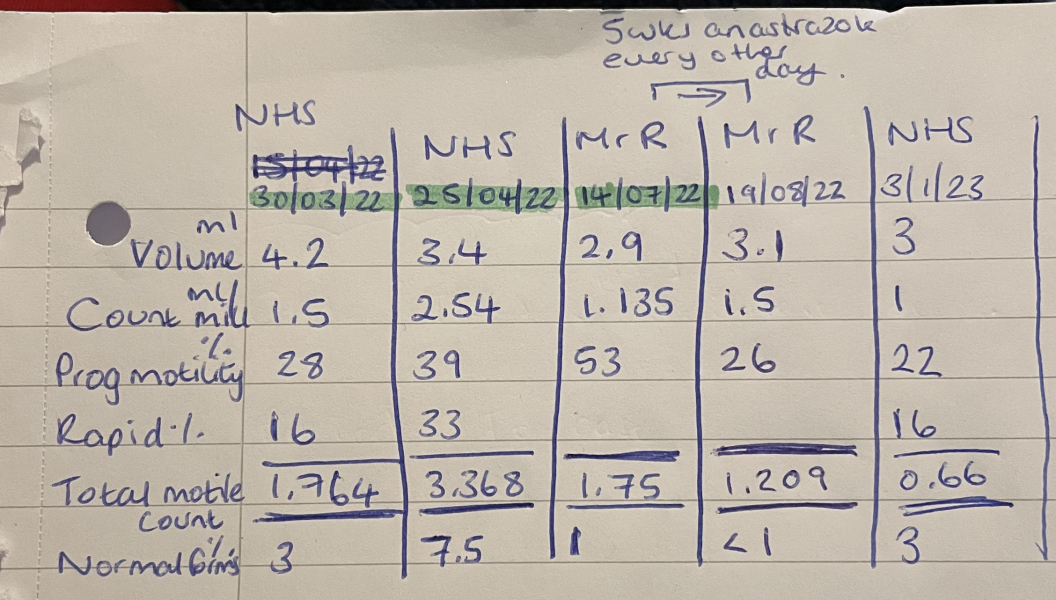 5wks anastrazole
every other
day.
NHS NHS Mr R Mr R NHS
15/04/22
30/03/22 25/04/22 14/07/22 19/08/22 3/1/23
ml
Volume 4.2 3.4 2.9 3.1 3
Count mill 1.5 2.54 1.135 1.5 1
%
Prog motility 28 39 53 26 22
Rapid % 16 33 16
Total motile 1.764 3.368 1.75 1.209 0.66
count
%
Normal forms 3 7.5 1 <1 3